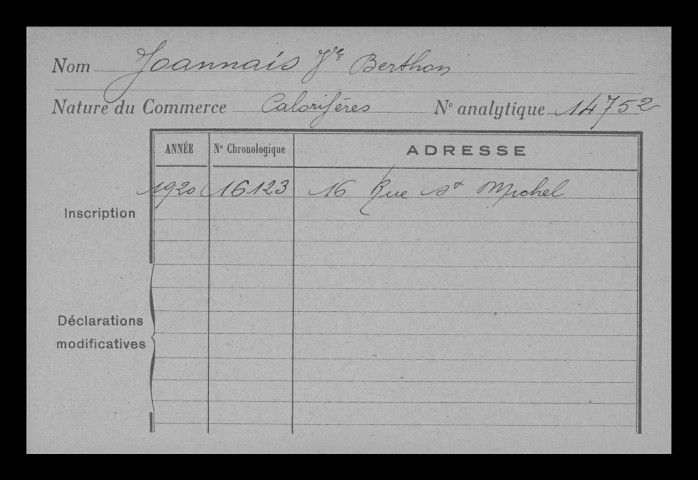 Nom Joannais Vve Berthon
Nature du Commerce Calorifères N° analytique 14752
ANNÉE N° Chronologique ADRESSE
Inscription 1920 16123 16 Rue St Michel
Déclarations
modificatives